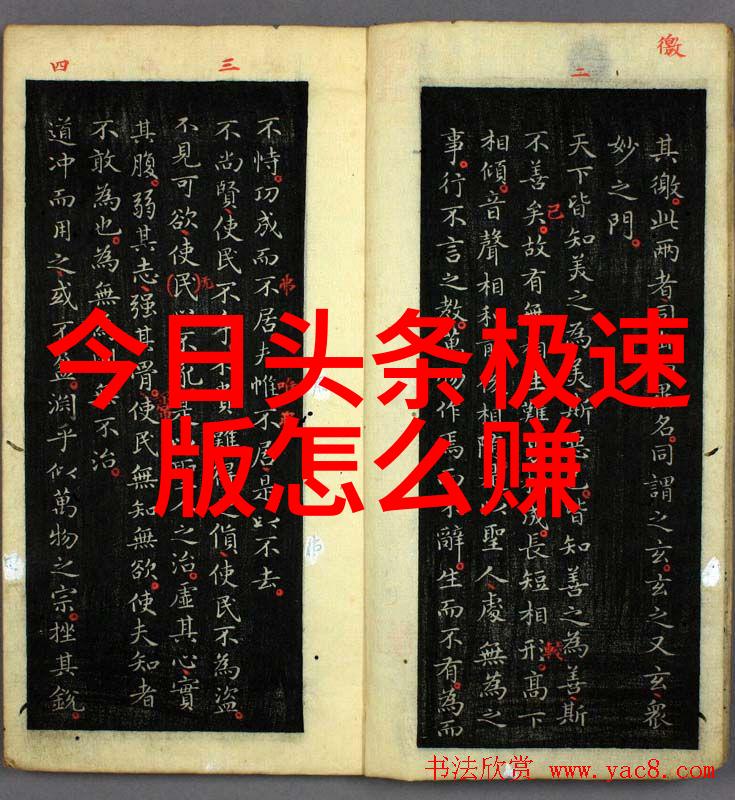 徼
二
其徼。此兩者同名。同謂之玄。玄之又玄。眾
妙之門。
天下皆知美之為美斯惡已。皆知善之為善斯
不善矣。故有無相生難成。長短相形。高下
已
較
相傾。音聲相和前後相聖人處無為之
事。行不言之教。萬物作焉而不辭。生而不有。為而
三
四
不恃。功成而不居夫惟不居。是以不去。
唯
不尚賢、使民不爭不貴難得之貨、使民不為盜。
不見可欲、使(民)不亂之治。虛其心實
无
其腹。弱其志、强其骨。使民無知無欲。使夫知者
不敢為也。為無為則無不治。
道冲而用之、或不盈。淵乎似萬物之宗。挫其銳。
今日头条极速
版怎么赚
书法欣赏 www.yac8.com